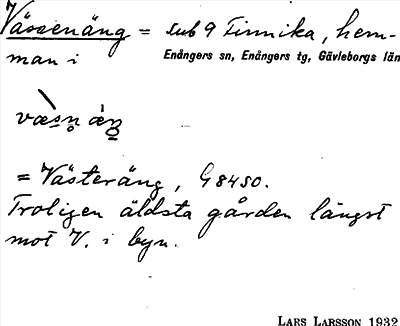 Vässenäng = sub 9 Finnika, hem-
man i Enångers sn, Enångers tg, Gävleborgs län
væsn æŋ
= Västeräng, G 8450.
Troligen äldsta gården längst
mot V. i byn.
LARS LARSSON 1932